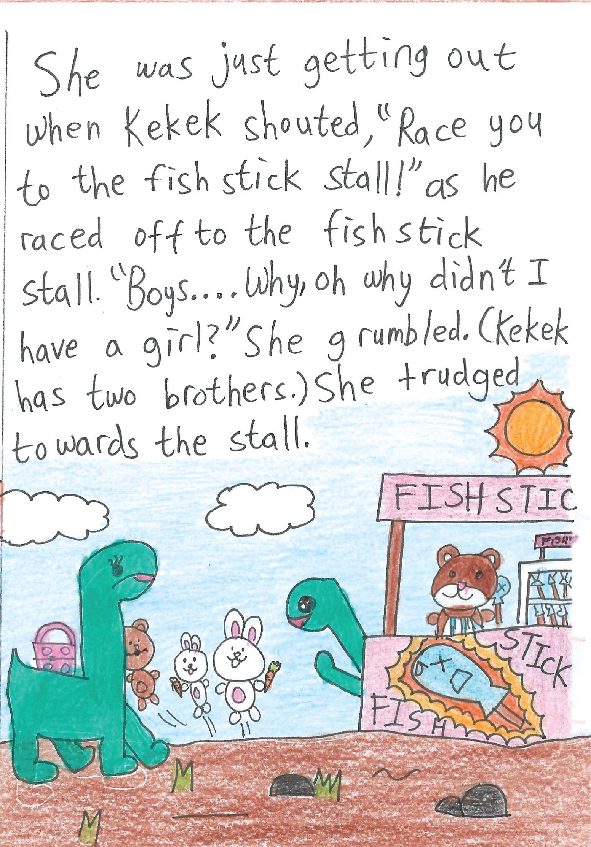 She was just getting out
when Kekek shouted, "Race you
to the fish stick stall!" as he
raced off to the fish stick
stall. "Boys.... Why, oh why didn't I
have a girl?" She grumbled. (Kekek
has two brothers.) She trudged
towards the stall.
FISH STIC
FISH
STICK
FISH